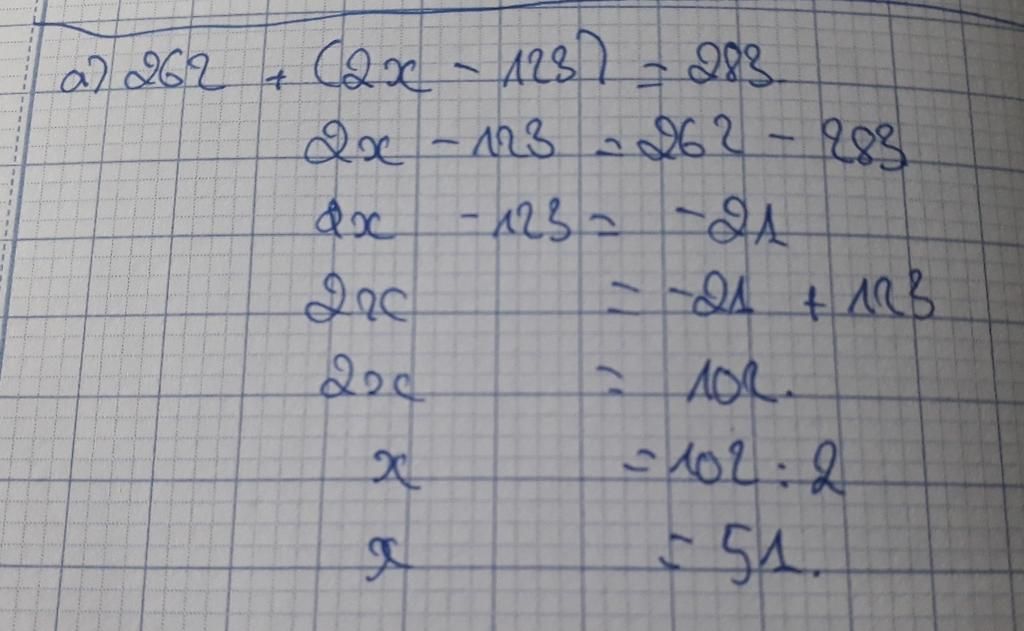 a) 262 + (2x - 123) = 283
2x - 123 = 262 - 283
2x - 123 = -21
2x = -21 + 123
2x = 102.
x = 102 : 2
x = 51.